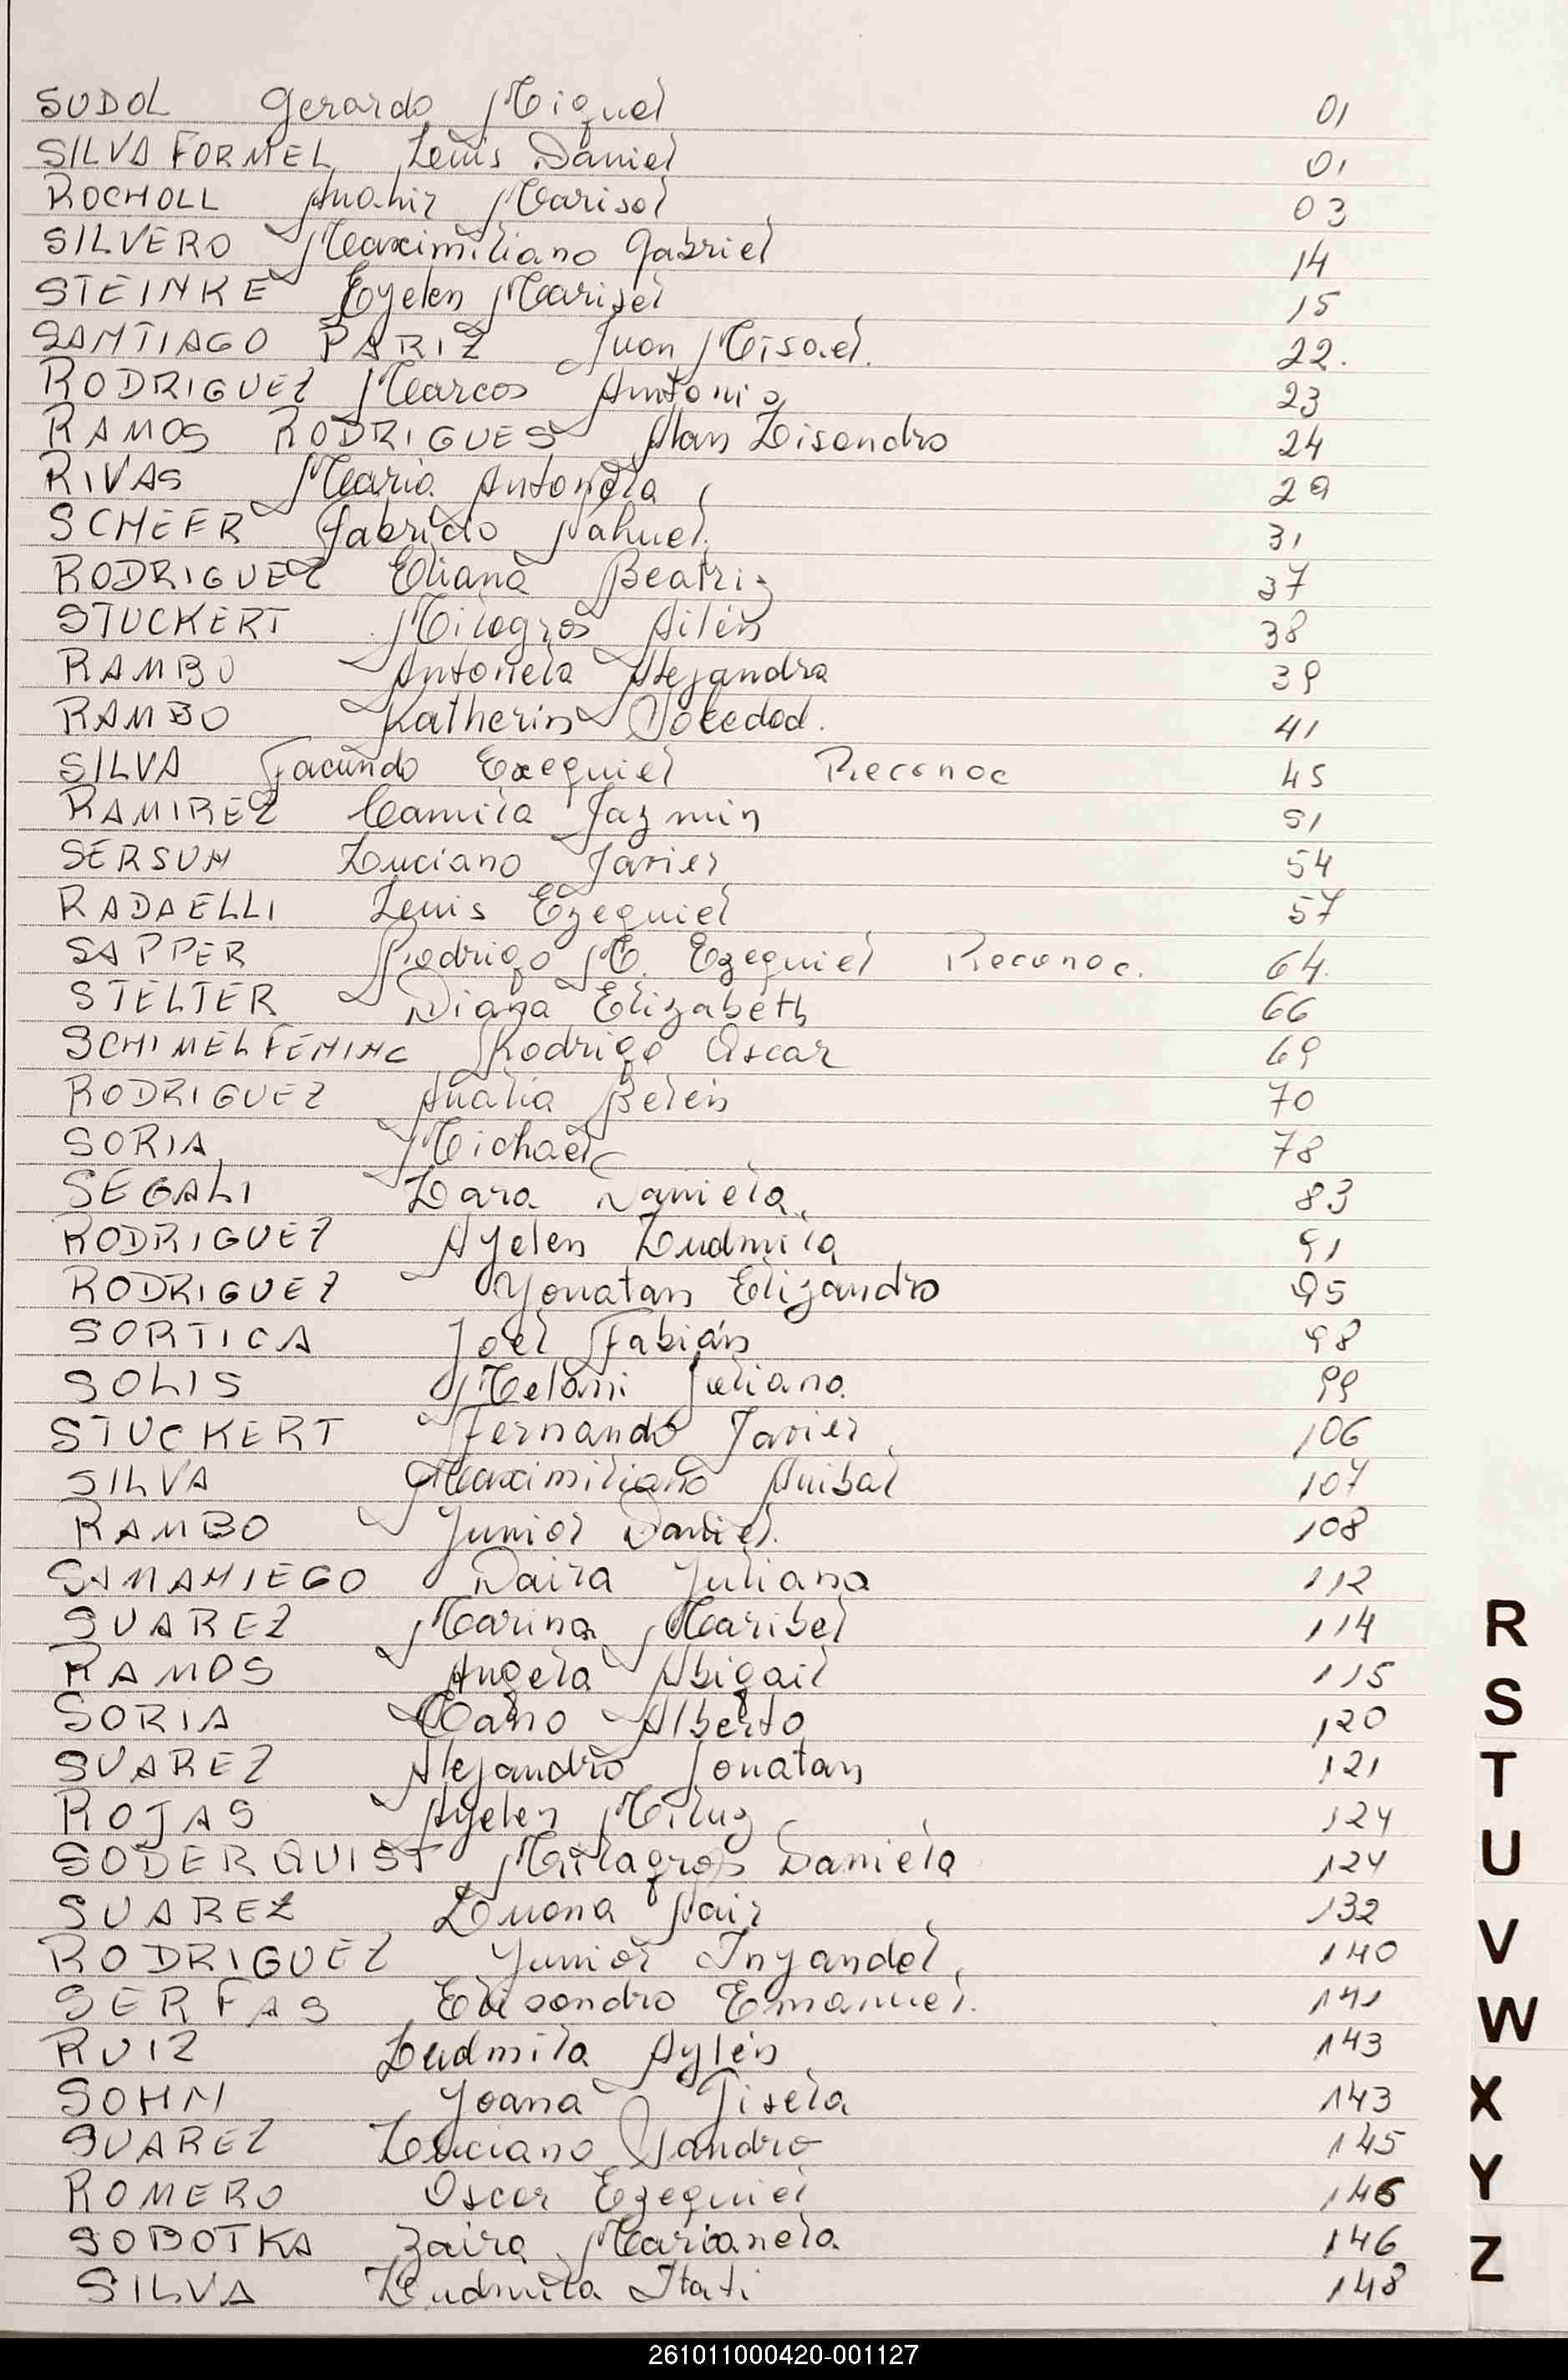 SUDOL Gerardo Miguel 01
SILVA FORMEL Luis Daniel 01
ROCHOLL Anahir Marisol 03
SILVERO Maximiliano Gabriel 14
STEINKE Eyelen Marisel 15
SANTIAGO PARIZ Juan Misael. 22.
RODRIGUEZ Marcos Antonio 23
RAMOS RODRIGUES Alan Lisandro 24
RIVAS Maria Antonela 29
SCHEFER Fabricio Nahuel. 31
RODRIGUEZ Eliana Beatriz 37
STUCKERT Milagros Ailén 38
RAMBO Antonela Alejandra 39
RAMBO Katherin Soledad. 41
SILVA Facundo Exequiel Reconoc 45
RAMIREZ Camila Jazmin 51
SERSUN Luciano Javier 54
RADAELLI Luis Ezequiel 57
SAPPER Rodrigo M. Ezequiel Reconoc. 64.
STELTER Diana Elizabeth 66
SCHIMELFENINC Rodrigo Oscar 69
RODRIGUEZ Analia Belén 70
SORIA Michael 78
SEGALI Lara Daniela 83
RODRIGUEZ Ayelen Ludmila 91
RODRIGUEZ Yonatan Elizandro 95
SORTICA Joel Fabián 98
SOLIS Melani Juliana. 99
STUCKERT Fernando Javier 106
SILVA Maximiliano Anibal 107
RAMBO Junior Daniel. 108
SAMANIEGO Daira Juliana 112
SUAREZ Marina Maribel 114
RAMOS Angela Abigail 115
SORIA Alberto 120
SUAREZ Alejandro Jonatan 121
ROJAS Ayelen Miluz 124
SODERQUIST Milagros Daniela 124
SUAREZ Luana Nair 132
RODRIGUEZ Yunior Inyandel 140
SERFAS Elisandro Emanuel. 141
RUIZ Ludmila Aylén 143
SOHN Yoana Gisela 143
SUAREZ Luciano Sandro 145
ROMERO Oscar Ezequiel 146
SOBOTKA Zaira Marianela 146
SILVA Ludmila Itati 148
R
S
T
U
V
W
X
Y
Z
261011000420-001127